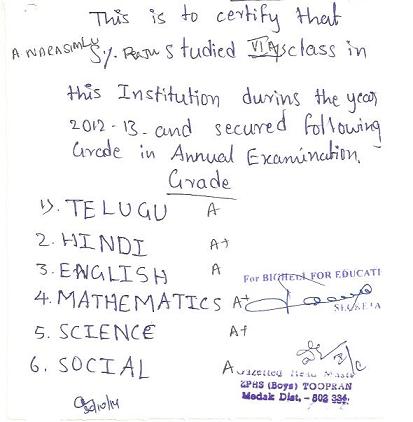 This is to certify that
A. NARASIMLU S/. Raju studied VI class in
this Institution during the year
2012-13. and secured following
Grade in Annual Examination.
Grade
1). TELUGU A
2. HINDI A+
3. ENGLISH A
4. MATHEMATICS A+
5. SCIENCE A+
6. SOCIAL A
FOR EDUCATI
Gazetted Head Maste
ZPHS (Boys) TOOPRAN
Medak Dist, - 502 334.